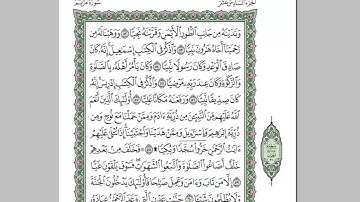 سورة مريم
الجزء السادس عشر
وَنَٰدَيْنَٰهُ مِن جَانِبِ ٱلطُّورِ ٱلْأَيْمَنِ وَقَرَّبْنَٰهُ نَجِيًّا ٥٢ وَوَهَبْنَا لَهُۥ مِن
رَّحْمَتِنَآ أَخَاهُ هَٰرُونَ نَبِيًّا ٥٣ وَٱذْكُرْ فِى ٱلْكِتَٰبِ إِسْمَٰعِيلَ إِنَّهُۥ كَانَ
صَادِقَ ٱلْوَعْدِ وَكَانَ رَسُولًا نَّبِيًّا ٥٤ وَكَانَ يَأْمُرُ أَهْلَهُۥ بِٱلصَّلَوٰةِ
وَٱلزَّكَوٰةِ وَكَانَ عِندَ رَبِّهِۦ مَرْضِيًّا ٥٥ وَٱذْكُرْ فِى ٱلْكِتَٰبِ إِدْرِيسَ إِنَّهُۥ
كَانَ صِدِّيقًا نَّبِيًّا ٥٦ وَرَفَعْنَٰهُ مَكَانًا عَلِيًّا ٥٧ أُو۟لَٰٓئِكَ ٱلَّذِينَ أَنْعَمَ
ٱللَّهُ عَلَيْهِم مِّنَ ٱلنَّبِيِّۦنَ مِن ذُرِّيَّةِ ءَادَمَ وَمِمَّنْ حَمَلْنَا مَعَ نُوحٍ وَمِن
ذُرِّيَّةِ إِبْرَٰهِيمَ وَإِسْرَٰٓءِيلَ وَمِمَّنْ هَدَيْنَا وَٱجْتَبَيْنَآ إِذَا تُتْلَىٰ عَلَيْهِمْ
ءَايَٰتُ ٱلرَّحْمَٰنِ خَرُّوا۟ سُجَّدًا وَبُكِيًّا ۩ ٥٨ فَخَلَفَ مِنۢ بَعْدِهِمْ
خَلْفٌ أَضَاعُوا۟ ٱلصَّلَوٰةَ وَٱتَّبَعُوا۟ ٱلشَّهَوَٰتِ فَسَوْفَ يَلْقَوْنَ غَيًّا
٥٩ إِلَّا مَن تَابَ وَءَامَنَ وَعَمِلَ صَٰلِحًا فَأُو۟لَٰٓئِكَ يَدْخُلُونَ ٱلْجَنَّةَ
وَلَا يُظْلَمُونَ شَيْـًٔا ٦٠ جَنَّٰتِ عَدْنٍ ٱلَّتِى وَعَدَ ٱلرَّحْمَٰنُ عِبَادَهُۥ